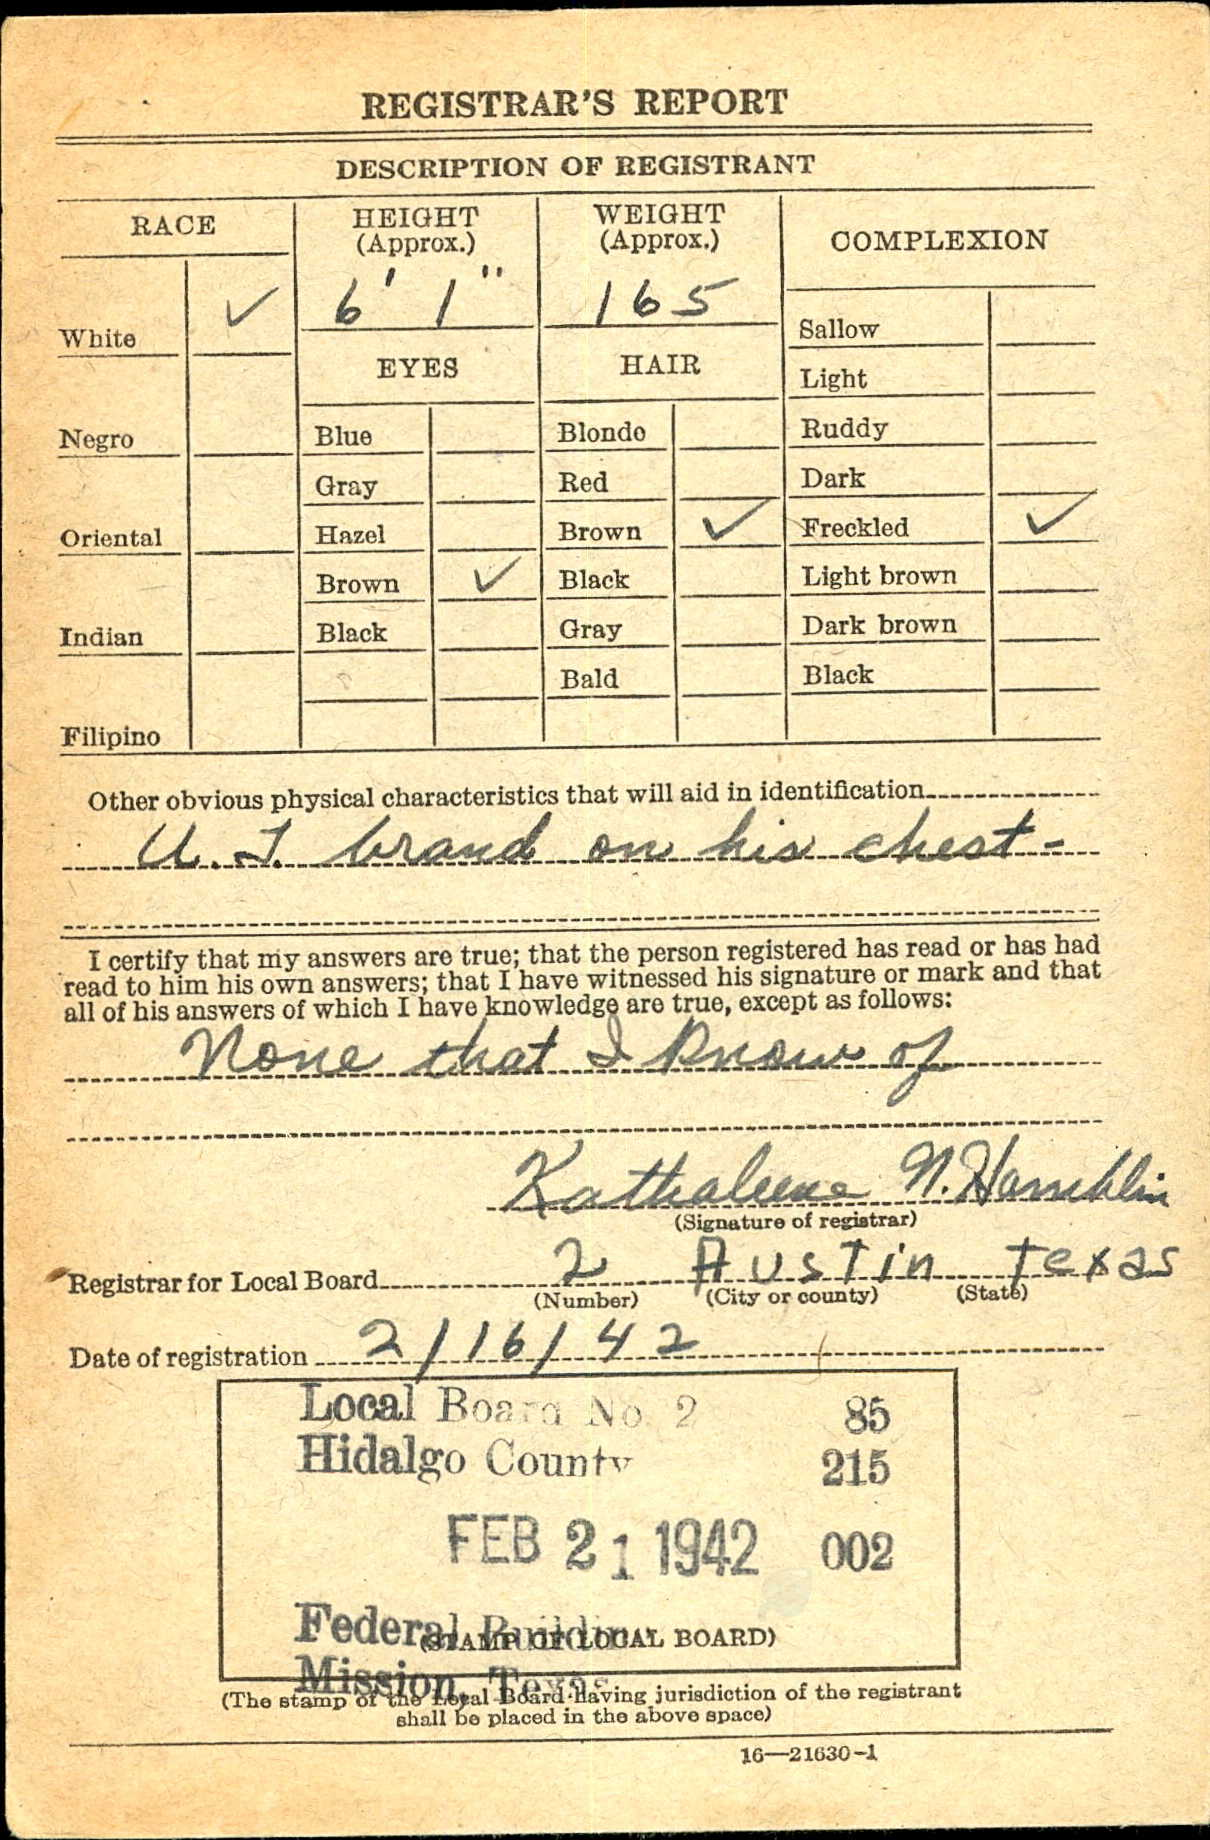 REGISTRAR'S REPORT
DESCRIPTION OF REGISTRANT
RACE
HEIGHT
(Approx.)
WEIGHT
(Approx.)
COMPLEXION
White ✓
6' 1"
165
EYES
HAIR
Sallow
Light
Negro
Blue
Blonde
Ruddy
Gray
Red
Dark
Oriental
Hazel
Brown ✓
Freckled ✓
Brown ✓
Black
Light brown
Indian
Black
Gray
Dark brown
Bald
Black
Filipino
Other obvious physical characteristics that will aid in identification
U.T. brand on his chest-
I certify that my answers are true; that the person registered has read or has had
read to him his own answers; that I have witnessed his signature or mark and that
all of his answers of which I have knowledge are true, except as follows:
None that I know of
Kathaleene N. Hamblin
(Signature of registrar)
Registrar for Local Board 2 Austin Texas
(Number) (City or county) (State)
Date of registration 2/16/42
Local Board No. 2 85
Hidalgo County 215
FEB 21 1942 002
Federal Building
(STAMP OF LOCAL BOARD)
Mission, Texas
(The stamp of the Local Board having jurisdiction of the registrant
shall be placed in the above space)
16—21630-1